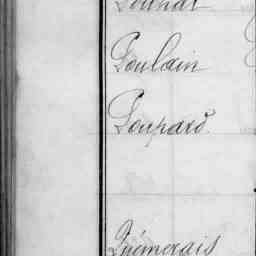 Poulain
Poupard
Quémerais